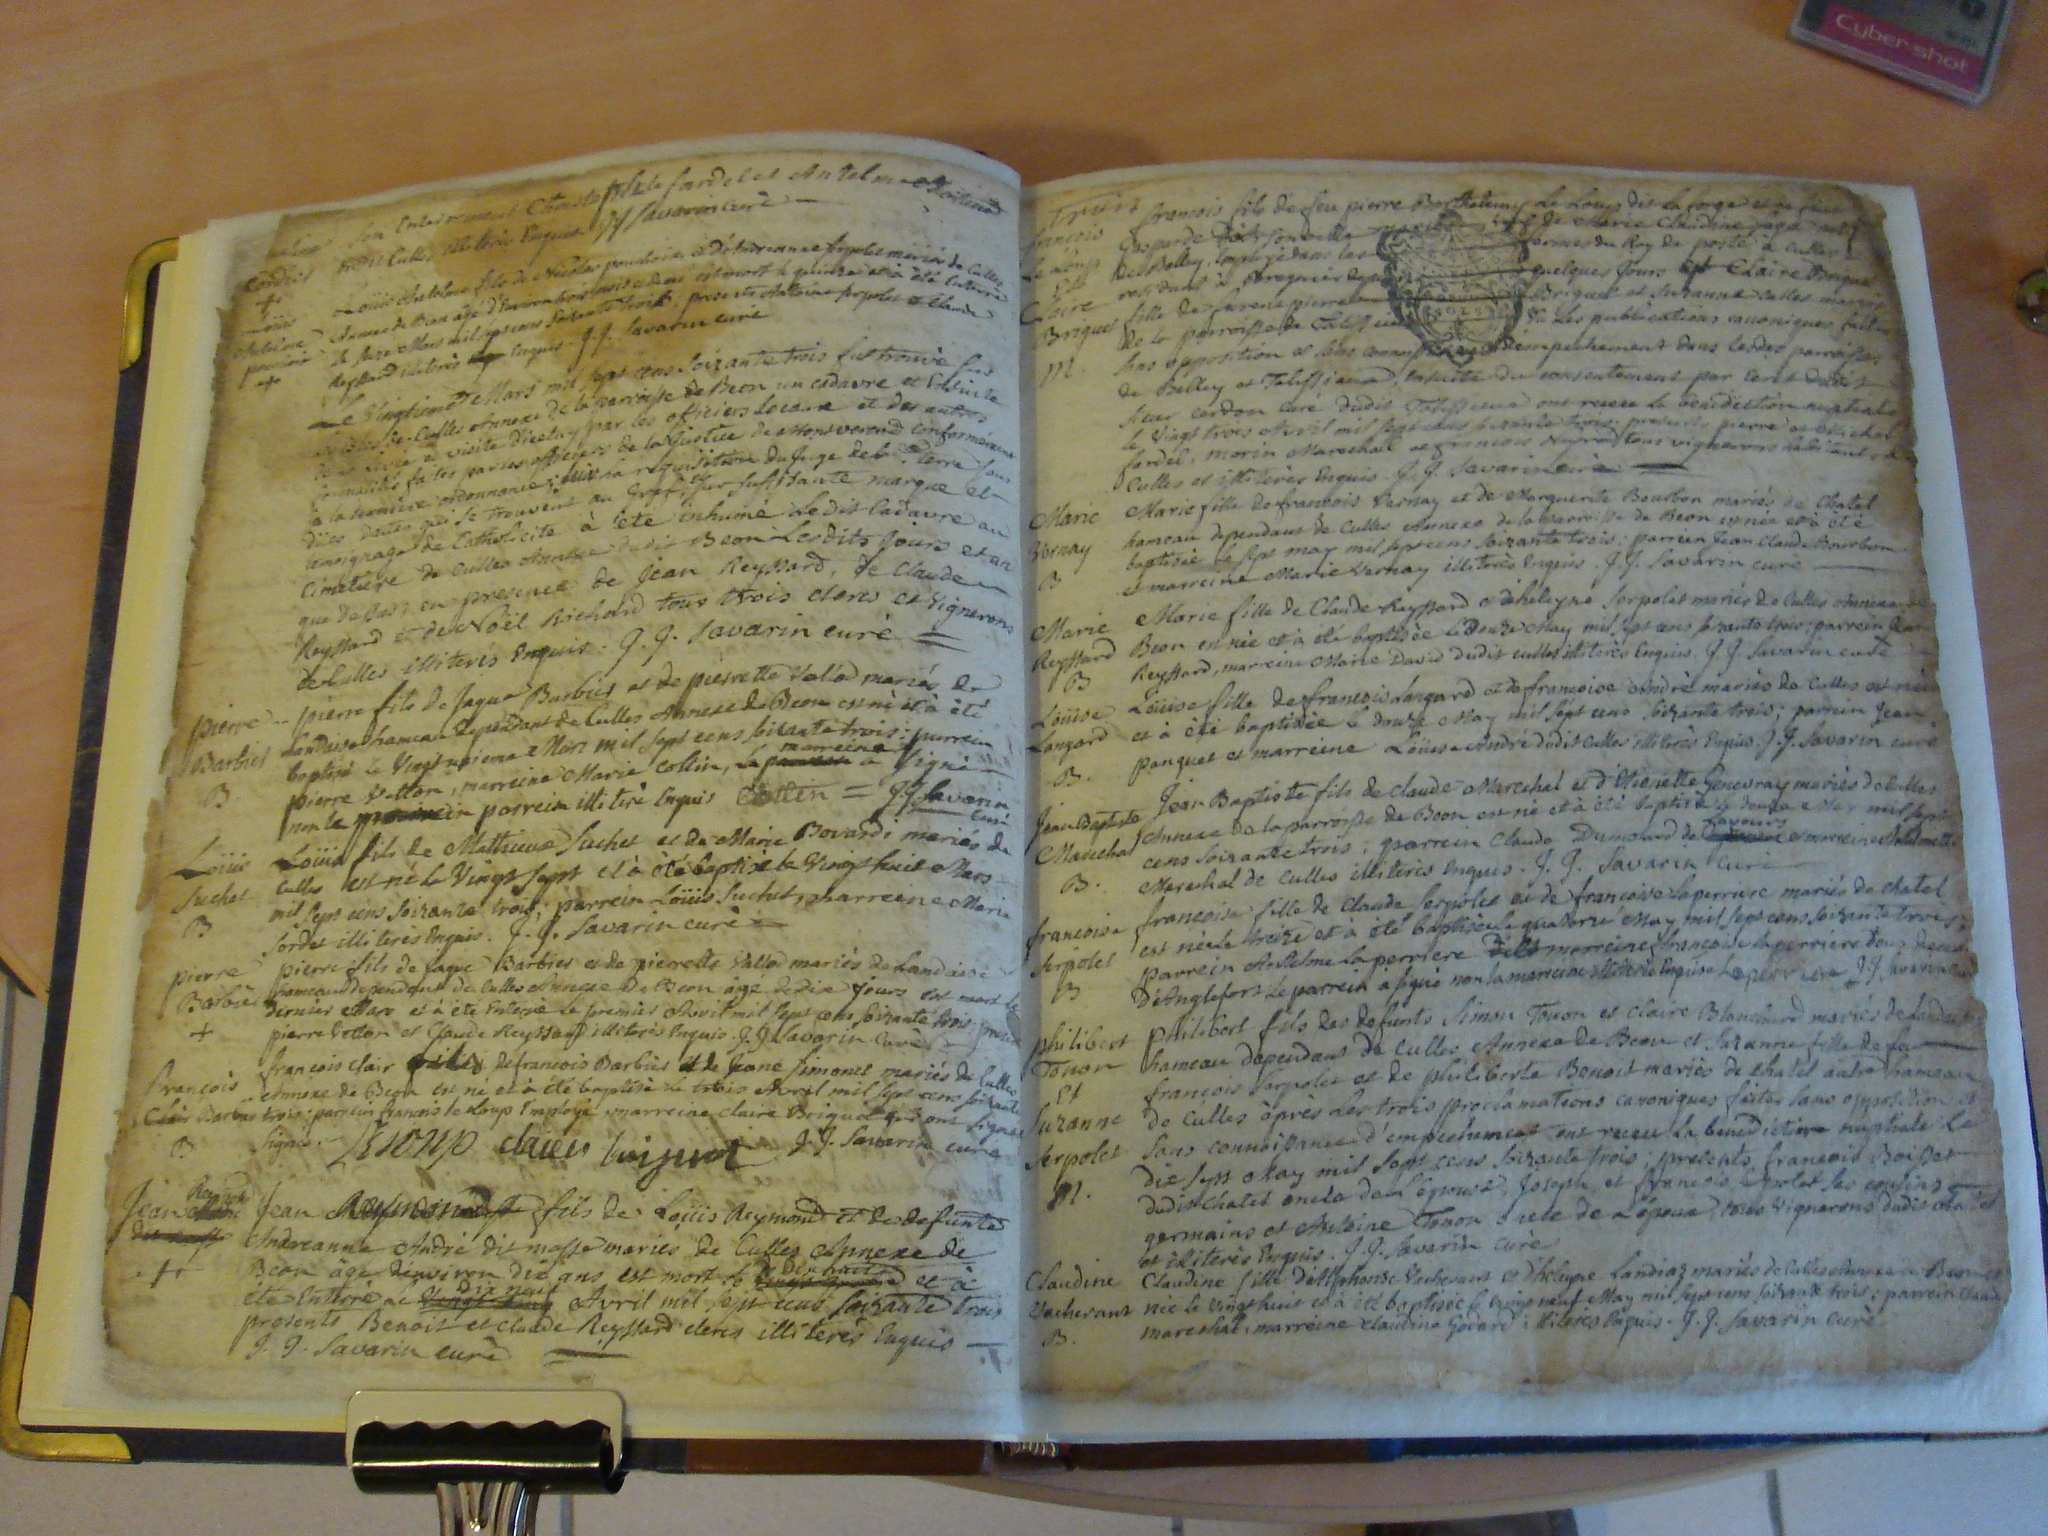 son Enterrement Christophle fardel et Antelme
de Culles illiterés Enquis J J Savarin curé
Loüis Antelme fils de Nicolas poncieux et d'Andreanne serpolet mariés de Culles
Annexe de Beon âgé d'Environ trois mois est mort le quinze et à été Enterré
le seze Mars mil sept cens soixante trois, presents Antoine serpolet et Claude
Reyssard illiterés Enquis. J. J. Savarin curé
Loüis
Antelme
+
Le Vingtieme Mars mil sept cens soixante trois fut trouvé
Culles Annexe de la parroisse de Beon un cadavre et Ensuite
visite d'iceluy par les officiers locaux et des autres
formalités faites par les officiers de la Justice de conformement
à la derniere ordonnance; à la requisition du Juge de la terre sous
dites dates qui se trouvent au Greffe, sur suffisante marque et
temoignage de Catholicité à été inhumé ledit Cadavre au
Cimetiere de Culles Annexe dudit Beon lesdits jours et an
que dessus en presence de Jean Reyssard, de Claude
Reyssard et de Noël Richard tous trois clercs et Vignerons
de Culles illiterés Enquis. J. J. Savarin curé
pierre
Barbier
B
pierre fils de Jaque Barbier et de pierrette Vallod mariés de
Landaise hameau dependant de Culles Annexe de Beon est né et à été
baptisé le Vingt unieme Mars mil sept cens soixante trois; parrein
pierre Vettan, marreine Marie Collin, la marreine a signé
non le parrein illiteré Enquis Collin J J Savarin
curé
Loüis
Suchet
B
Loüis fils de Mathieux Suchet et de Marie Bovard mariés de
Culles est né le Vingt sept et à été baptisé le Vingt huit Mars
mil sept cens soixante trois; parrein Loüis Suchet, marreine Marie
Sordet illiterés Enquis. J. J. Savarin curé
pierre
Barbier
+
pierre fils de Jaque Barbier et de pierrette Vallod mariés de Landaise
hameau dependant de Culles Annexe de Beon âgé de dix jours est mort le
dernier Mars et à été Enterré le premier Avril mil sept cens soixante trois
pierre Vettan et Claude Reyssard illiterés Enquis. J. J. Savarin Curé
François
Clair Barbier
B
François Clair fils de françois Barbier et de Jeane Simonet mariés de Culles
Annexe de Beon est né et à été baptisé le trois Avril mil sept cens soixante
trois; parrein françois le loup Employé, marreine Claire Briquet qui ont signé
signés. LELOUP J. J. Savarin curé
Jean Reymond
+
Jean Reymond fils de Loüis Reymond et de defunte
Andreanne André dit masse mariés de Culles Annexe de
Beon âgé d'environ dix ans est mort le dix huit et à
été Enterré le dix neuf Avril mil sept cens soixante trois
presents Benoit et Claude Reyssard clercs illiterés Enquis
J. J. Savarin curé
françois
Le Loup
Et
Claire
Briquet
M.
françois fils de feu pierre Barthelemy Le Loup dit la forge et de
Gasparde de Marie Claudine
de Belley, employé dans les fermes du Roy de poste à Culles
quelques jours Et Claire Briquet
fille de pierre Briquet et Suzanne Culles mariés
de la parroisse de Talissieu Vu les publications canoniques faites
sans opposition et sans connoissance d'empechement dans lesdes parroisses
de Belley et Talissieux, ensuite du consentement par ecrit dudit
sieur cerdon curé dudit Talissieux ont receu la benediction nuptiale
le Vingt trois Avril mil sept cens soixante trois; presents pierre et Michel
fardel, morin Marechal et françois tous vignerons habitants de
Culles et illiterés Enquis. J. J. Savarin curé
Marie
Vernay
B
Marie fille de francois Vernay et de Marguerite Bourbon mariés de Chatel
hameau dependant de Culles Annexe de la parroisse de Beon est née et à été
baptisée le sept may mil sept cens soixante trois; parrein Jean Claude Bourbon
et marreine Marie Vernay illiterés Enquis. J. J. Savarin curé
Marie
Reyssard
B
Marie fille de Claude Reyssard et d'heleyne Serpolet mariés de Culles Annexe de
Beon est née et à été baptisée le douze May mil sept cens soixante trois; parrein Jean
Reyssard, marreine Marie David dudit Culles illiterés Enquis. J J Savarin curé
Loüise
Langard
B.
Loüise fille de françois Langard et de francoise André mariés de Culles est née
et à été baptisée le douze May mil sept cens soixante trois; parrein Jean
panquet et marreine Loüise André dudit Culles illiterés Enquis. J. J. Savarin curé
Jean Baptiste
Marechal
B.
Jean Baptiste fils de Claude Marechal et d'Henriette Genevray mariés de Culles
Annexe de la parroisse de Beon est né et à été baptisé le douze May mil sept
cens soixante trois; parrein Claude Dumolard de Lavours et marreine
Marechal de Culles illiterés Enquis. J. J. Savarin Curé
francoise
Serpolet
B
francoise fille de Claude Serpolet et de francoise Laperriere mariés de Chatel
est née le treize et à été baptisée le quatorze May mil sept cens soixante trois;
parrein Antelme la perriere marreine francoise la perriere tous deux
d'Anglefort le parrein a signé non la marreine illiterée Enquise Laperriere J. J. Savarin curé
philibert
Touon
Et
Suzanne
Serpolet
M.
philibert fils des defunts Simon Touon et Claire Blanchard mariés de Landaise
hameau dependant de Culles Annexe de Beon et Suzanne fille de feu
françois Serpolet et de philiberte Benoit mariés de Chatel autre hameau
de Culles après les trois proclamations canoniques faites sans opposition et
sans connoissance d'empechement ont receu la benediction nuptiale le
dix sept May mil sept cens soixante trois; presents francois Boisset
dudit Chatel oncle de l'epouse, Joseph et francois Serpolet ses cousins
germains et Antoine Touon oncle de l'epoux, tous Vignerons dudit Chatel
et illiterés Enquis. J. J. Savarin curé
Claudine
Vacherant
B.
Claudine fille d'Alphonse Vacherant et d'heleyne Landraz mariés de Culles Annexe de Beon est
née le Vingt huit et à été baptisée le Vingt neuf May mil sept cens soixante trois; parrein Claude
mareshal, marreine Claudine Godard illiterés Enquis. J. J. Savarin Curé
Cyber-shot